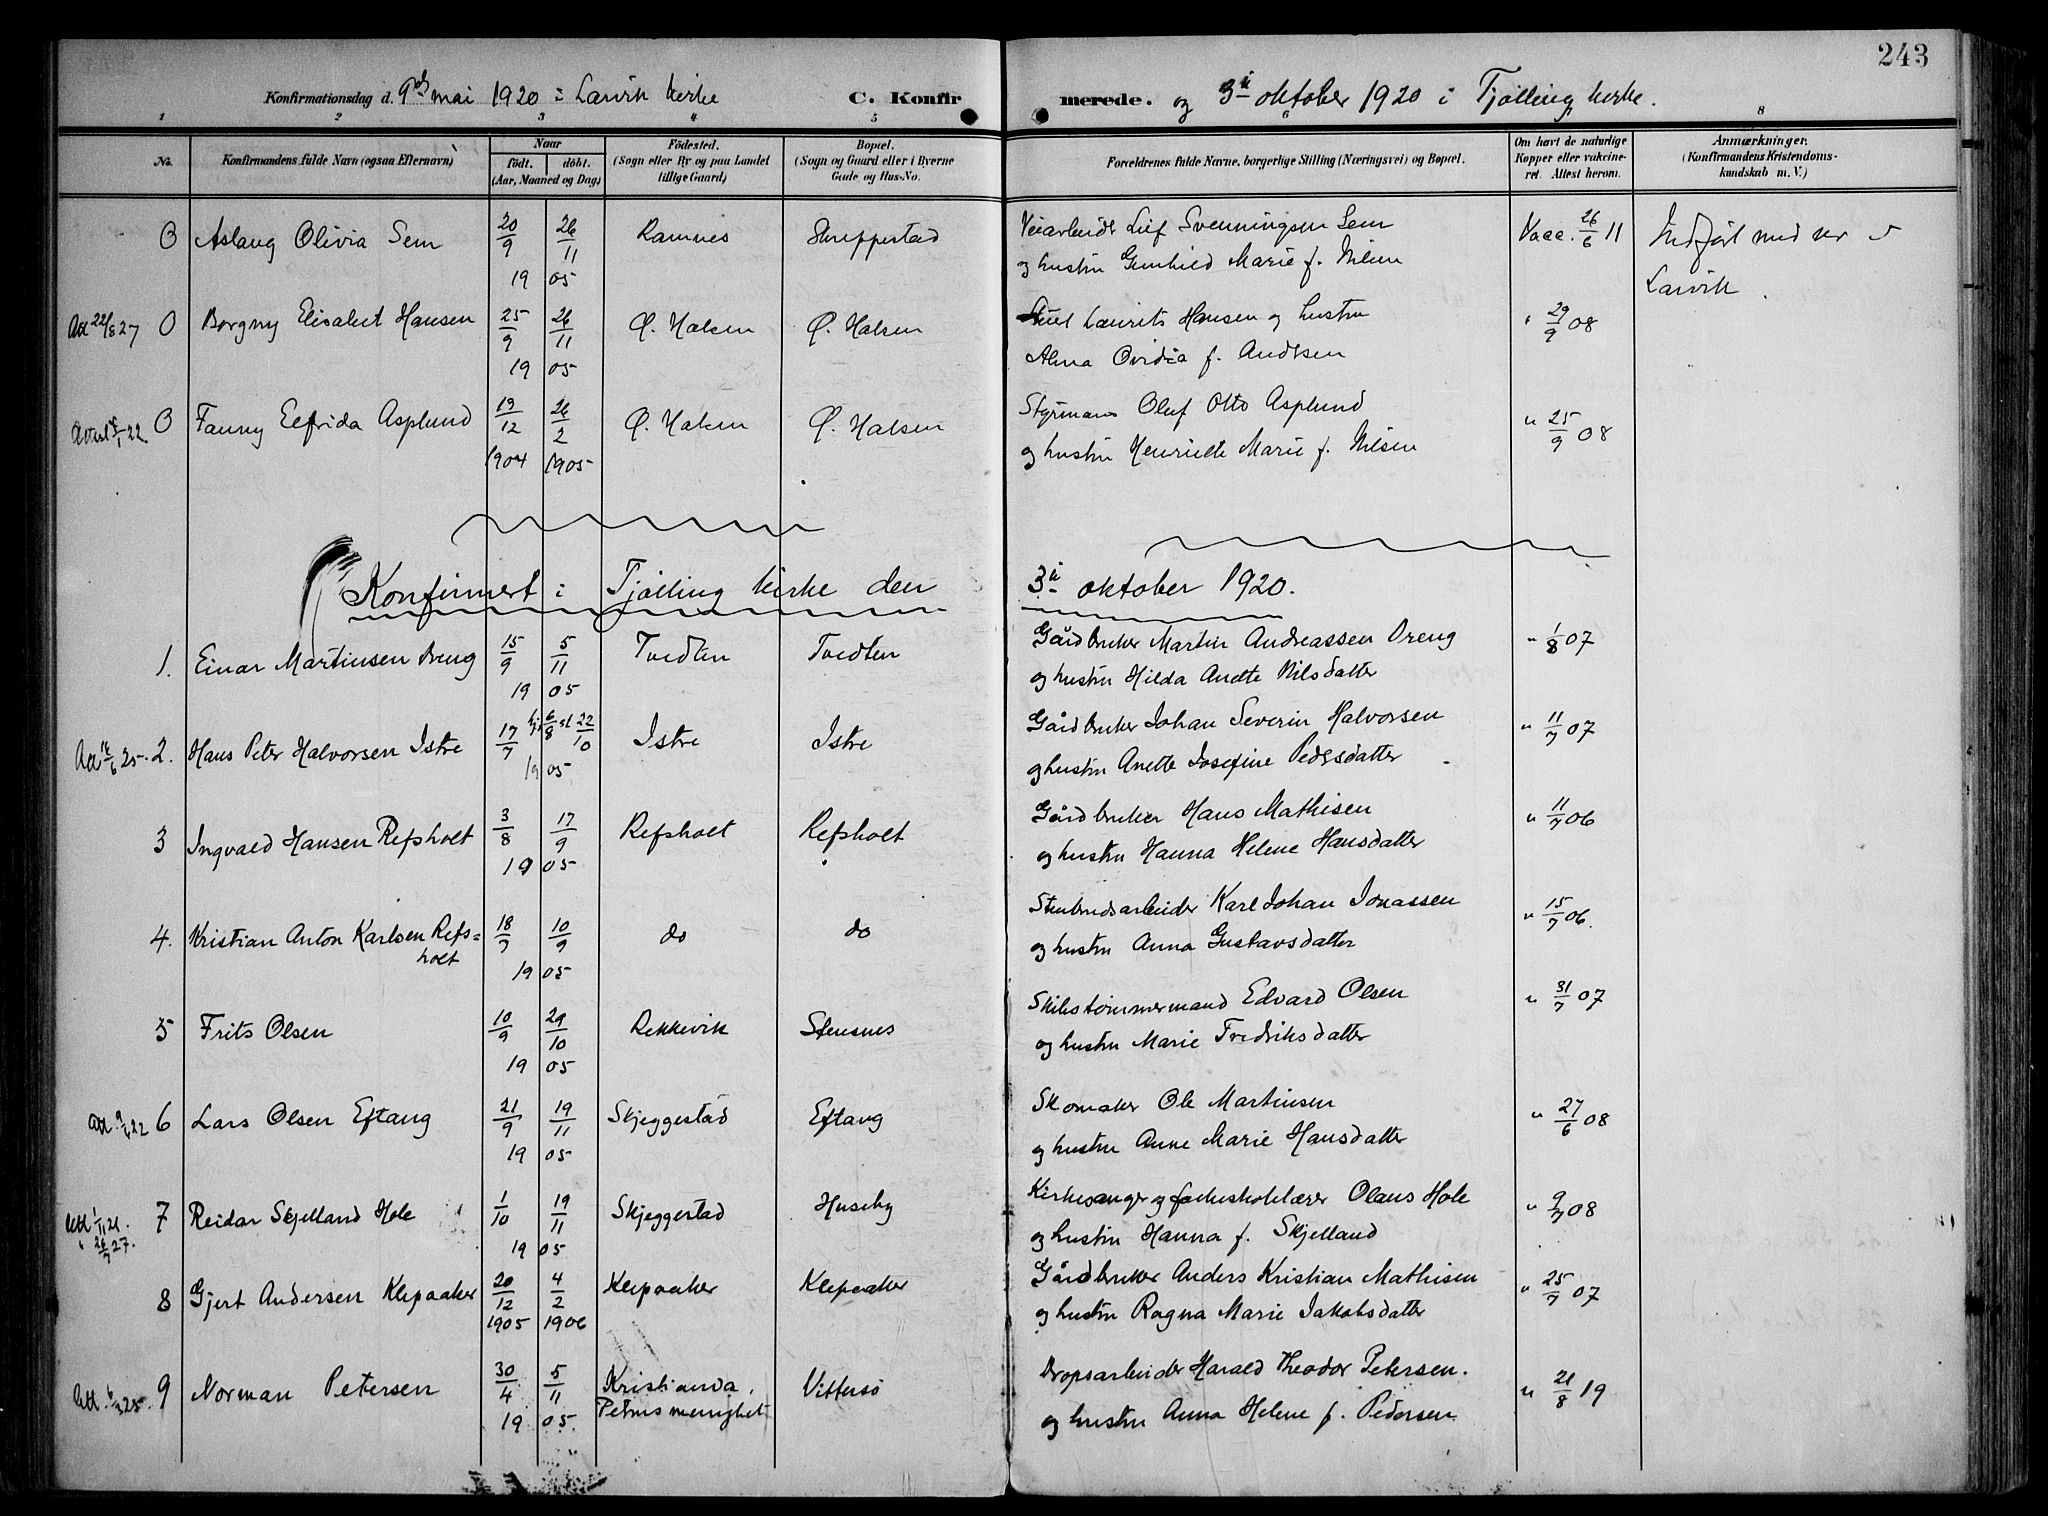 243
Konfirmationsdag d. 9de mai 1920 i Larvik kirke C. Konfirmerede. og 3di oktober 1920 i Tjølling kirke.
1 2 3 4 5 6 8
No. Konfirmandens fulde Navn (ogsaa Efternavn) Naar født. døbt. (Aar, Maaned og Dag) Fødested. (Sogn eller By og paa Landet tillige Gaard) Bopæl. (Sogn og Gaard eller i Byerne Gade og Hus-No. Forældrenes fulde Navne, borgerlige Stilling (Næringsvei) og Bopæl. Om havt de naturlige Kopper eller vakcineret. Attest herom. Anmærkninger. (Konfirmandens Kristendomskundskab m. V.)
0 Aslaug Olivia Sem 20/9 26/11 19 05 Ramnes Skreppestad Veiarbeider Leif Svenningsen Sem Vacc. 26/6 11 Indført med
og hustru Gunhild Marie f. Nilsen Larvik.
Att 22/8 27 0 Borgny Elisabet Hansen 25/9 26/11 19 05 Ø. Halsen Ø. Halsen Laurits Hansen og hustru " 29/9 08
Alma Ovidia f. Andersen
Attest 5/1 22 0 Fanny Elfrida Asplund 19/12 26/2 1904 1905 Ø. Halsen Ø. Halsen Styrmann Oluf Otto Asplund " 25/9 08
og hustru Henriette Marie f. Nilsen
Konfirmert i Tjølling kirke den 3di oktober 1920.
1. Einar Martinsen Dreng 15/9 5/11 19 05 Tvedten Tvedten Gårdbruker Martin Andreassen Dreng " 1/8 07
og hustru Hilda Anette Nilsdatter
Att 16/6 25. 2. Hans Peter Halvorsen Istre 17/7 hj 6/8 st 22/10 19 05 Istre Istre Gårdbruker Johan Severin Halvorsen " 11/7 07
og hustru Anette Josefine Pedersdatter
3 Ingvald Hansen Refsholt 3/8 17/9 19 05 Refsholt Refsholt Gårdbruker Hans Mathisen " 11/7 06
og hustru Hanna Helene Hansdatter
4. Kristian Anton Karlsen Refs=holt 18/7 10/9 19 05 do do Stenbrudsarbeider Karl Johan Jonassen " 15/7 06.
og hustru Anna Gustavsdatter
5 Frits Olsen 10/9 29/10 19 05 Rekkevik Stensnes Skibstømmermand Edvard Olsen " 31/7 07
og hustru Marie Fredriksdatter
Att. 9/1 22 6 Lars Olsen Eftang 21/9 19/11 19 05 Skjeggestad Eftang Skomaker Ole Martinsen " 27/6 08
og hustru Anne Marie Hansdatter
Att 1/11 21. " 26/7 27. 7 Reidar Skjelland Hole 1/10 19/11 19 05 Skjeggestad Huseby Kirkesanger og folkeskolelærer Olaus Hole " 9/7 08
og hustru Hanna f. Skjelland
8 Gjert Andersen Klepaaker 20/12 4/2 1905 1906 Klepaaker Klepaaker Gårdbruker Anders Kristian Mathisen " 25/7 07
og hustru Ragna Marie Jakobsdatter
Att. 6/3 25. 9 Norman Petersen 30/4 5/11 19 05. Kristiania, Petrus menighet Vittersø Dropsarbeider Harald Theodor Petersen. " 21/8 19
og hustru Anna Helene f. Pedersen